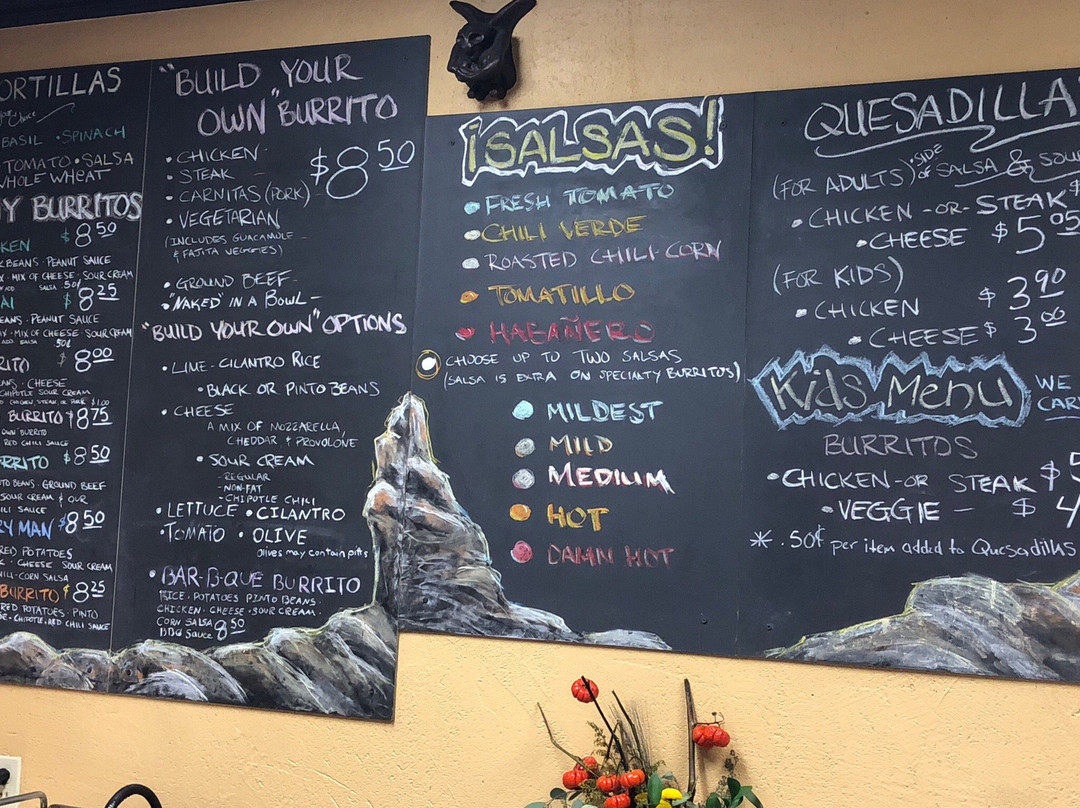 ORTILLAS
BASIL • SPINACH
TOMATO • SALSA
WHOLE WHEAT
Y BURRITOS
KEN $8.50
BEANS • PEANUT SAUCE
• MIX OF CHEESE • SOUR CREAM
ADD SALSA .50¢
AI $8.25
EANS • PEANUT SAUCE
• MIX OF CHEESE • SOUR CREAM
ADD SALSA .50¢
RITO $8.00
ANS • CHEESE
CHIPOTLE SOUR CREAM
BURRITO $8.75
OWN BURRITO
RED CHILI SAUCE
RRITO $8.50
TO BEANS • GROUND BEEF
SOUR CREAM & OUR
ILI SAUCE
RY MAN $8.50
RED POTATOES
• CHEESE SOUR CREAM
HILI-CORN SALSA
BURRITO $8.25
RED POTATOES • PINTO
• CHIPOTLE • RED CHILI SAUCE
"BUILD YOUR
OWN" BURRITO
• CHICKEN - $8.50
• STEAK -
• CARNITAS (PORK)
• VEGETARIAN
(INCLUDES GUACAMOLE
& FAJITA VEGGIES)
• GROUND BEEF -
• "NAKED" IN A BOWL -
"BUILD YOUR OWN" OPTIONS
• LIME - CILANTRO RICE
• BLACK OR PINTO BEANS
• CHEESE
A MIX OF MOZZARELLA,
CHEDDAR & PROVOLONE
• SOUR CREAM
- REGULAR
- NON-FAT
- CHIPOTLE CHILI
• LETTUCE • CILANTRO
• TOMATO • OLIVE
olives may contain pits
• BAR-B-QUE BURRITO
RICE • POTATOES PINTO BEANS •
CHICKEN • CHEESE • SOUR CREAM •
CORN SALSA
BBQ SAUCE 8.50
¡SALSAS!
• FRESH TOMATO
• CHILI VERDE
• ROASTED CHILI-CORN
• TOMATILLO
• HABAÑERO
CHOOSE UP TO TWO SALSAS
(SALSA IS EXTRA ON SPECIALTY BURRITOS)
• MILDEST
• MILD
• MEDIUM
• HOT
• DAMN HOT
QUESADILLA
(FOR ADULTS) • SIDE OF SALSA & SOU
• CHICKEN -OR- STEAK $
• CHEESE $5.05
(FOR KIDS)
• CHICKEN $3.90
• CHEESE $3.00
Kids Menu
WE
CAR
BURRITOS
• CHICKEN - OR STEAK $5
• VEGGIE - $4
* .50¢ per item added to Quesadillas